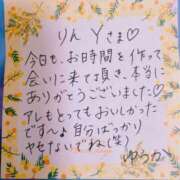 りん Yさま♡
今日も、お時間を作って
会いに来て頂き、本当に
ありがとうございました♡
アレもとってもおいしかった
です〜♪自分ばっかり
ヤセないでね(笑)
ゆうか